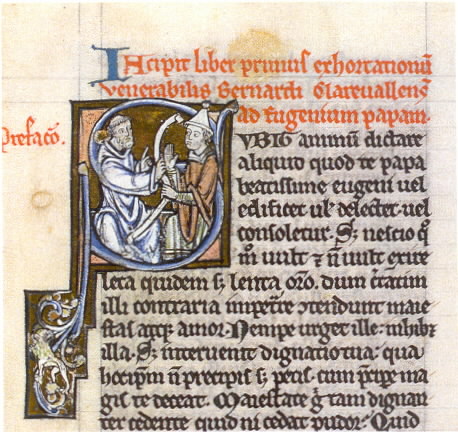 Incipit liber primus exhortationū
venerabilis Bernardi Clarevallens̄
ad Eugenium papam.
Prefacō.
SVBIT animum dictare
aliquid quod te papa
beatissime eugeni uel
edificet ul' delectet uel
consoletur. S; nescio qͦ
m̄ uult ⁊ n̄ uult exire
leta quidem s; lenta orō. dum c̄tatim
illi contraria imper̄re ↄtendunt maie
stas atq; amor. Nempe urget ille: inhib;
illa. S; interuenit dignatio tua: qua
hoc ipm̄ n̄ precipis s; petis. cum p̄cipe ma
gis te deceat. Maiestate g̃ tam dignan
ter cedente quid ni cedat pudor. Quid